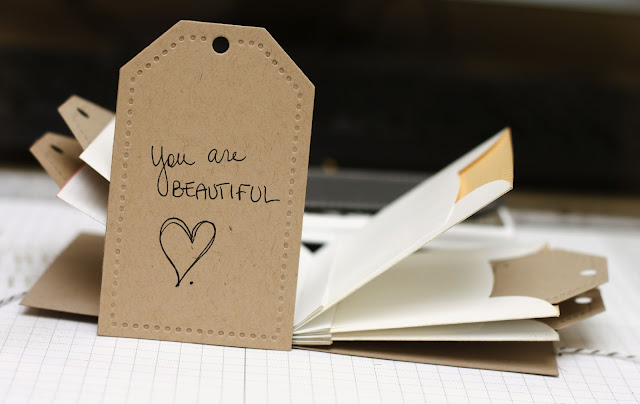 You are
BEAUTIFUL